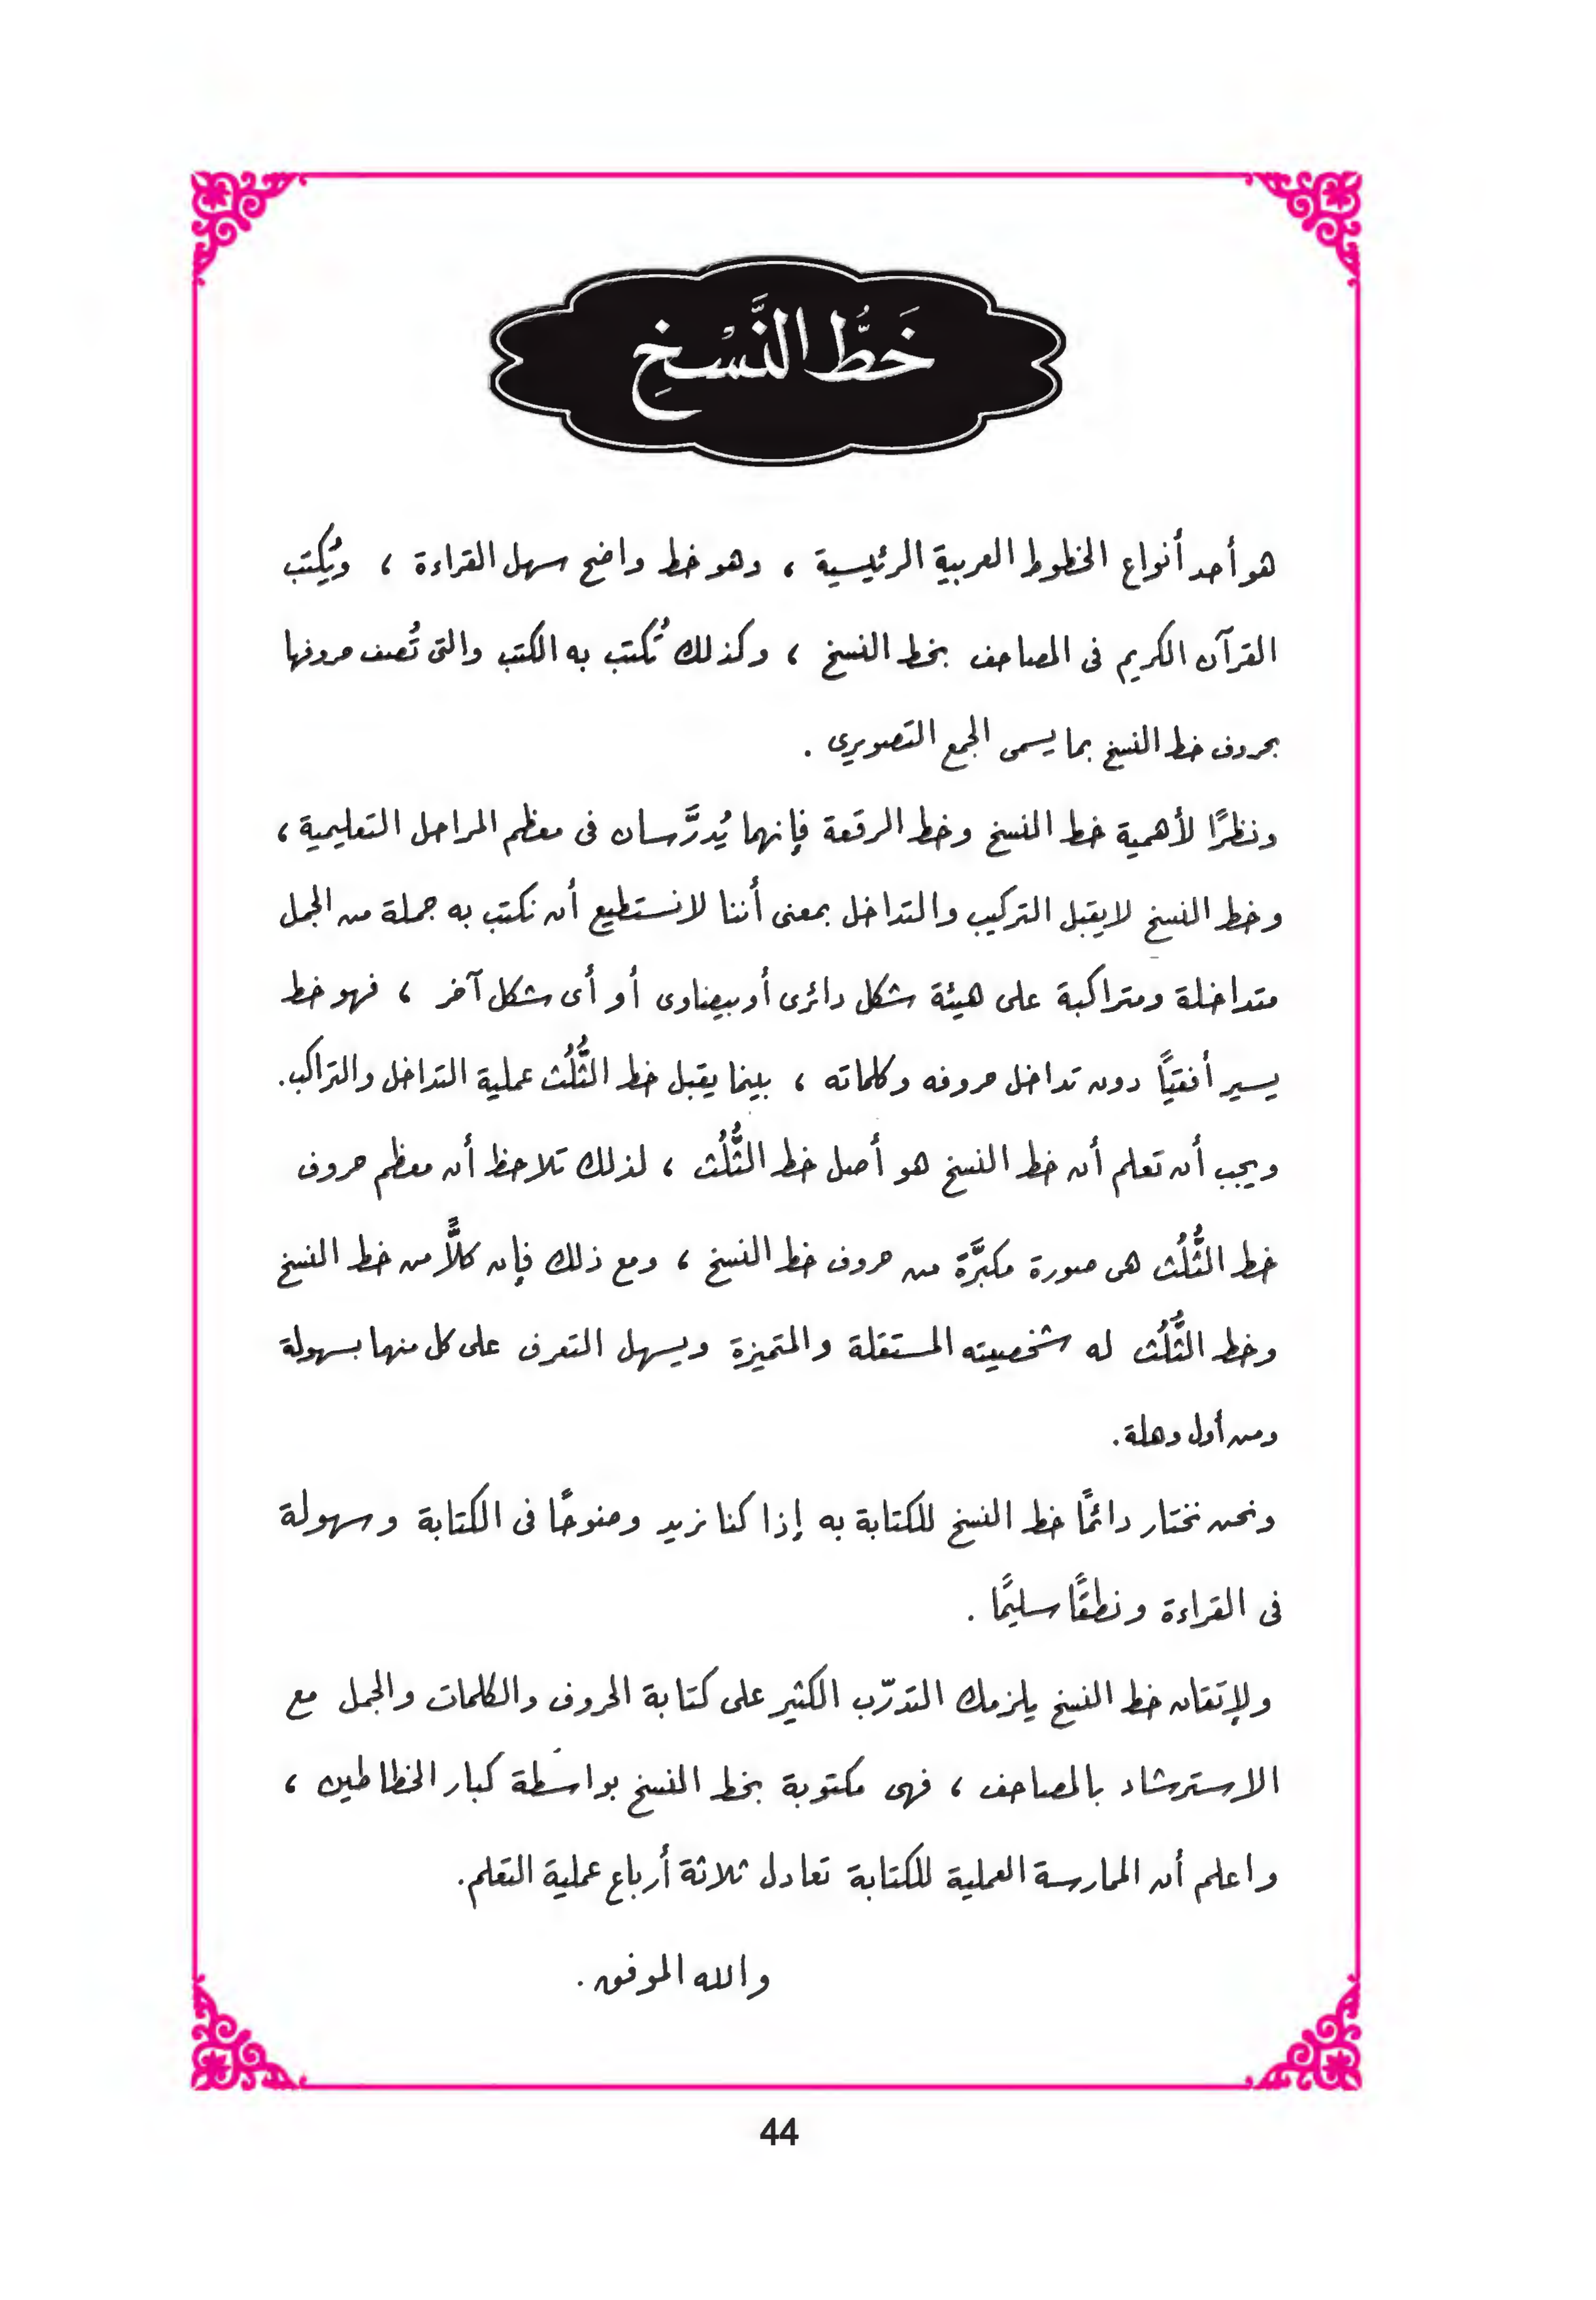 خَطُّ النَّسْخِ
هو أحد أنواع الخطوط العربية الرئيسية ، وهو خط واضح سهل القراءة ، ويُكتب
القرآن الكريم فى المصاحف بخط النسخ ، وكذلك تُكتب به الكتب والتى تُصف حروفها
بحروف خط النسخ بما يسمى الجمع التصويرى .
ونظرًا لأهمية خط النسخ وخط الرقعة فإنهما يُدرَّسان فى معظم المراحل التعليمية ،
وخط النسخ لايقبل التركيب والتداخل بمعنى أننا لانستطيع أن نكتب به جملة من الجمل
متداخلة ومتراكبة على هيئة شكل دائرى أو بيضاوى أو أى شكل آخر ، فهو خط
يسير أفقيًّا دون تداخل حروفه وكلماته ، بينما يقبل خط الثُّلُث عملية التداخل والتراكب.
ويجب أن تعلم أن خط النسخ هو أصل خط الثُّلُث ، لذلك تلاحظ أن معظم حروف
خط الثُّلُث هى صورة مكبَّرة من حروف خط النسخ ، ومع ذلك فإن كلاًّ من خط النسخ
وخط الثُّلُث له شخصيته المستقلة والمتميزة ويسهل التعرف على كل منهما بسهولة
ومن أول وهلة.
ونحن نختار دائمًا خط النسخ للكتابة به إذا كنا نريد وضوحًا فى الكتابة وسهولة
فى القراءة ونطقًا سليمًا .
ولإتقان خط النسخ يلزمك التدرّب الكثير على كتابة الحروف والكلمات والجمل مع
الاسترشاد بالمصاحف ، فهى مكتوبة بخط النسخ بواسطة كبار الخطاطين ،
واعلم أن الممارسة العملية للكتابة تعادل ثلاثة أرباع عملية التعلم.
والله الموفق .
44